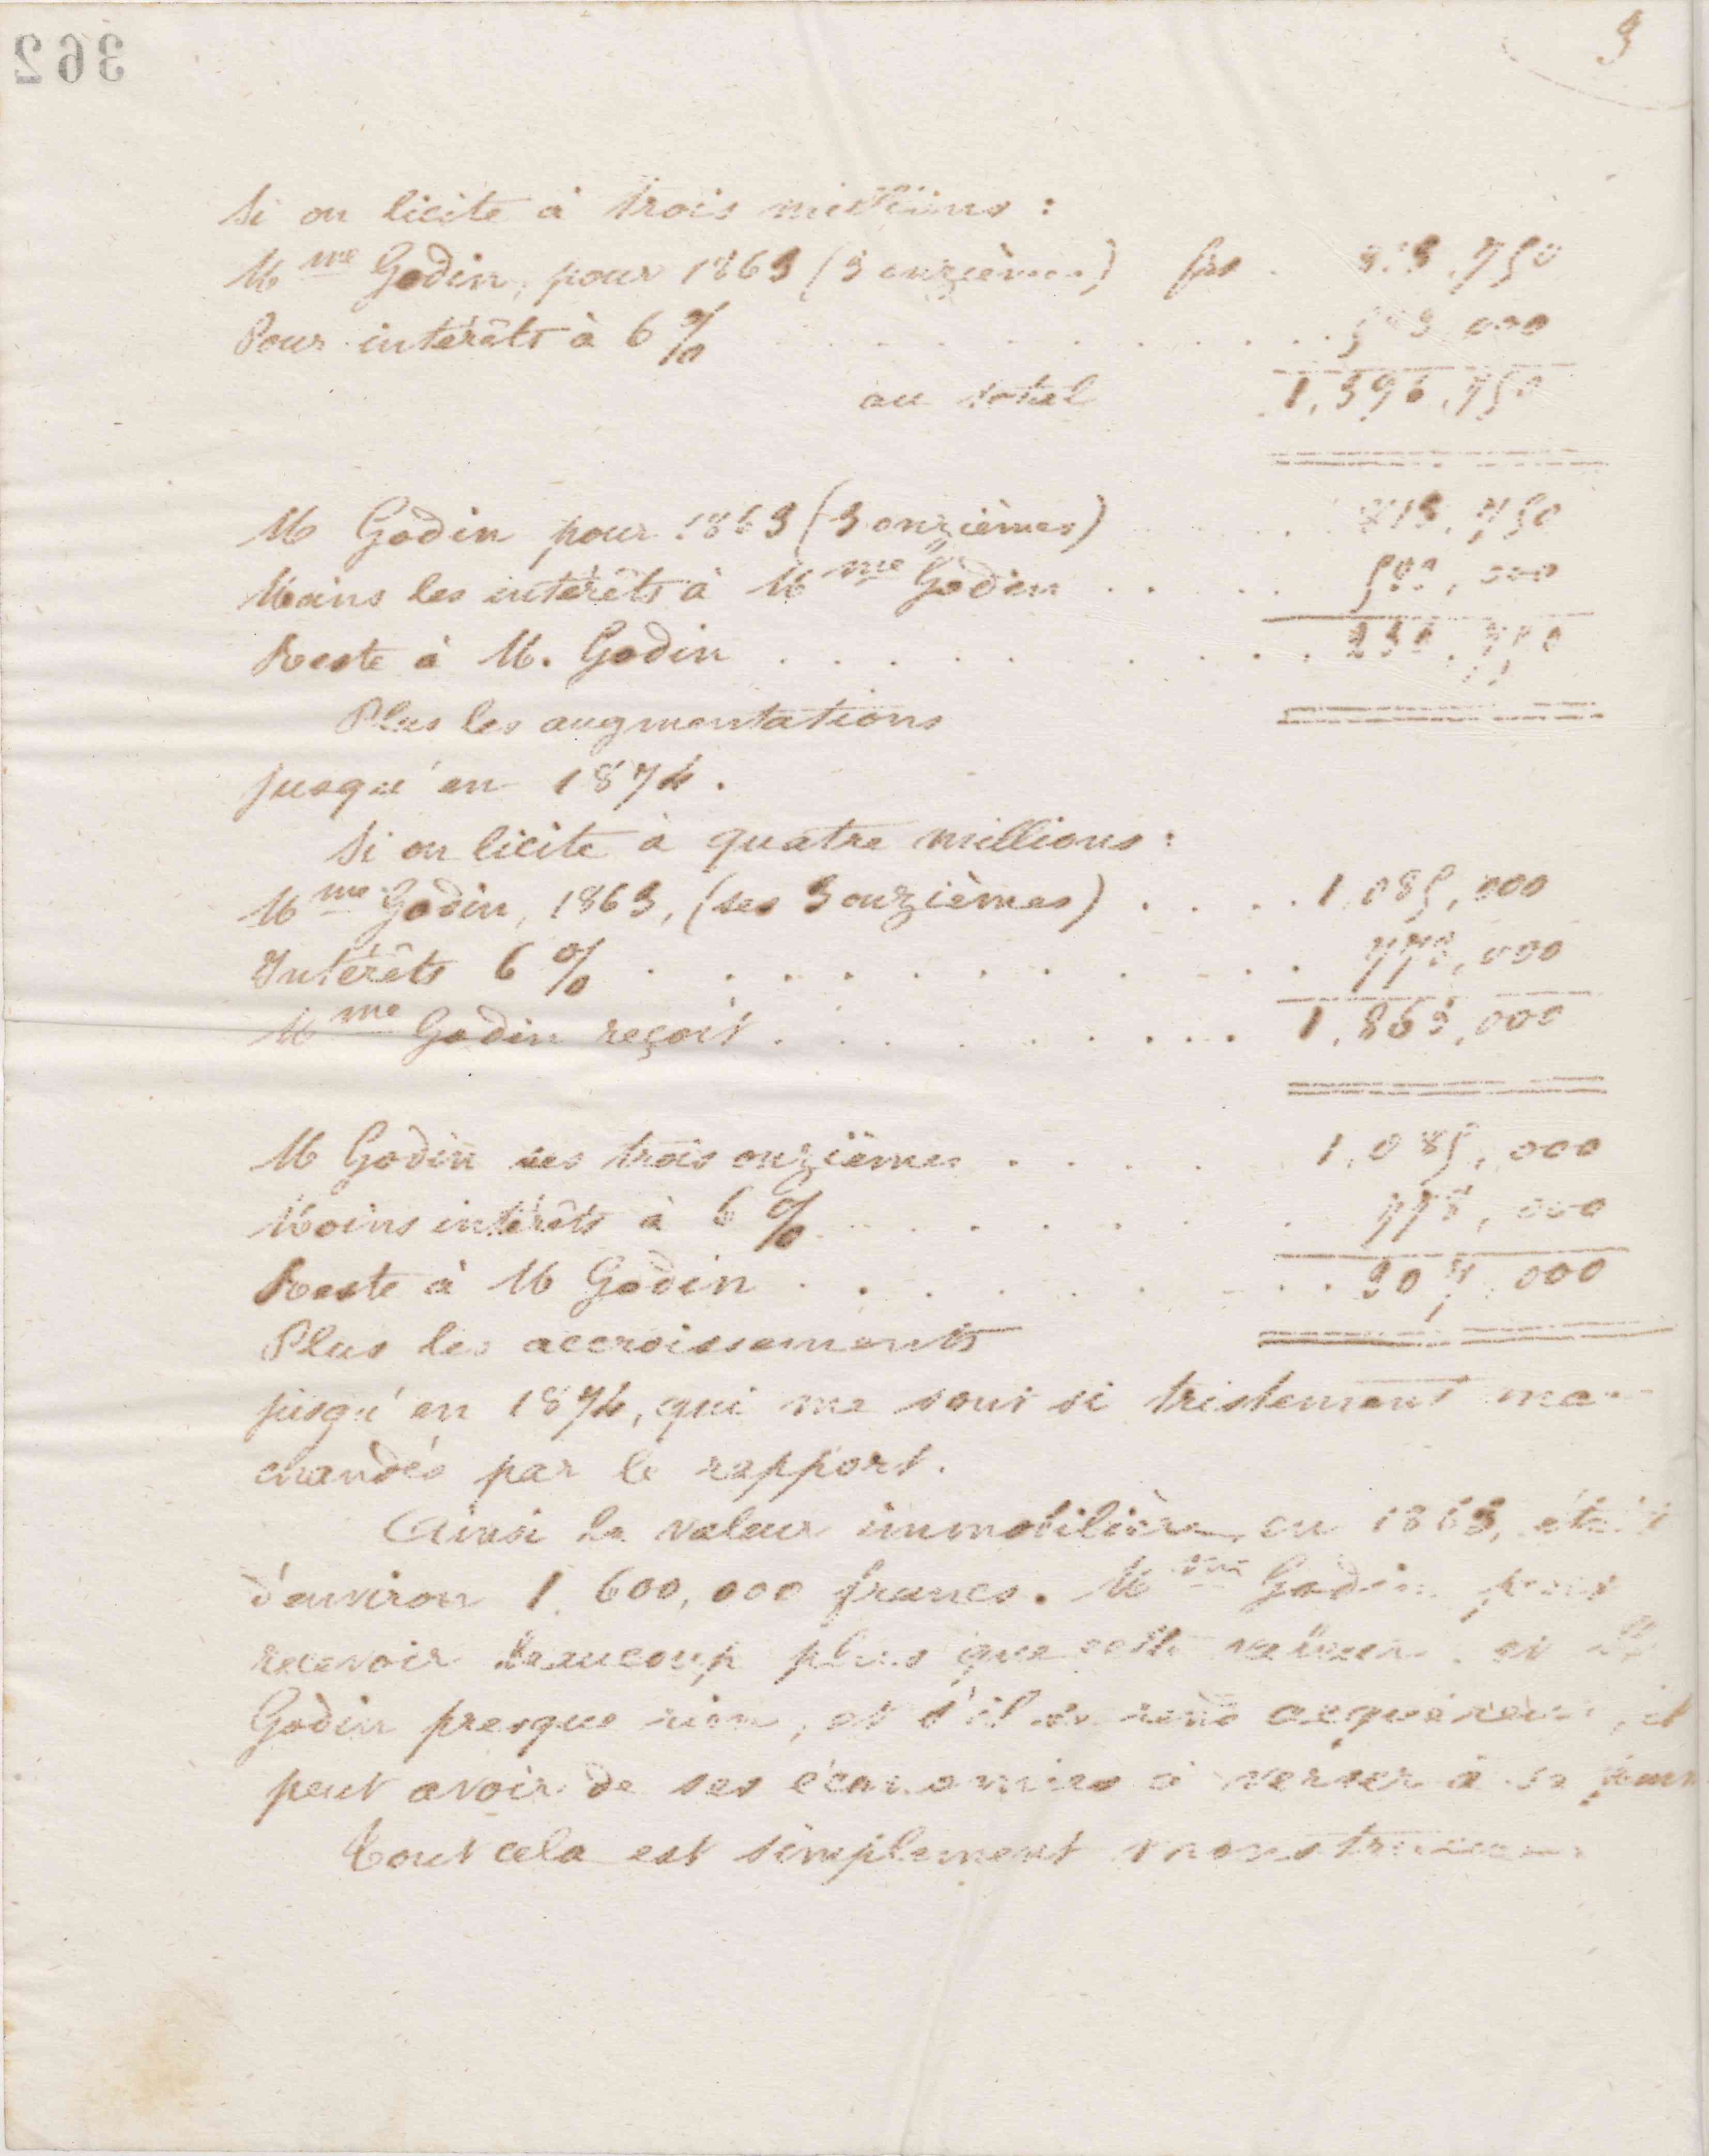 362
3
Si on licite à trois millions :
Mme Godin, pour 1863 (3 onzièmes) frs . 813.750
Pour intérêts à 6 % . . . . . . . . . . . 583.000
au total 1,396,750
M Godin pour 1863 (3 onzièmes) . . . 813,750
Moins les intérêts à Mme Godin . . . . 583,000
Reste à M. Godin . . . . . . . . . . 230.750
Plus les augmentations
jusqu'en 1874.
Si on licite à quatre millions :
Mme Godin, 1863, (ses 3 onzièmes) . . . . 1,085,000
Intérêts 6 % . . . . . . . . . . . 778,000
Mme Godin reçoit . . . . . . . . . . 1,863,000
M Godin ses trois onzièmes . . . . 1,085,000
Moins intérêts à 6 % . . . . . . . . 778,000
Reste à M Godin . . . . . . . . . . 307,000
Plus les accroissements
jusqu'en 1874, qui me sont si tristement mar-
chandés par le rapport.
Ainsi la valeur immobilière, en 1863, était
d'environ 1,600,000 francs. Mme Godin peut
recevoir beaucoup plus que cette valeur, et M
Godin presque rien, et s'il se rend acquéreur, il
peut avoir de ses économies à verser à sa femme
Tout cela est simplement monstrueux